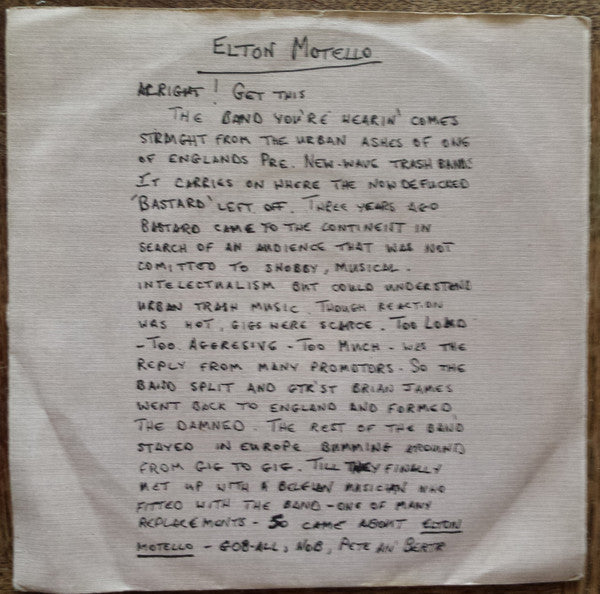 ELTON MOTELLO
ALRIGHT! GET THIS
THE BAND YOU'RE HEARIN' COMES
STRAIGHT FROM THE URBAN ASHES OF ONE
OF ENGLANDS PRE. NEW-WAVE TRASH BANDS
IT CARRIES ON WHERE THE NOW DEFUCKED
'BASTARD' LEFT OFF. THREE YEARS AGO
BASTARD CAME TO THE CONTINENT IN
SEARCH OF AN AUDIENCE THAT WAS NOT
COMITTED TO SNOBBY, MUSICAL.
INTELECTUALISM BUT COULD UNDERSTAND
URBAN TRASH MUSIC. THOUGH REACTION
WAS HOT, GIGS WERE SCARCE. TOO LOUD
- TOO AGGRESIVE - TOO MUCH - WAS THE
REPLY FROM MANY PROMOTORS. SO THE
BAND SPLIT AND GTR'ST BRIAN JAMES
WENT BACK TO ENGLAND AND FORMED
THE DAMNED. THE REST OF THE BAND
STAYED IN EUROPE BUMMING AROUND
FROM GIG TO GIG. TILL THEY FINALLY
MET UP WITH A BELGIAN MUSICIAN WHO
FITTED WITH THE BAND - ONE OF MANY
REPLACEMENTS - SO CAME ABOUT ELTON
MOTELLO - GOB-ALL, NOB, PETE AN' BERTR